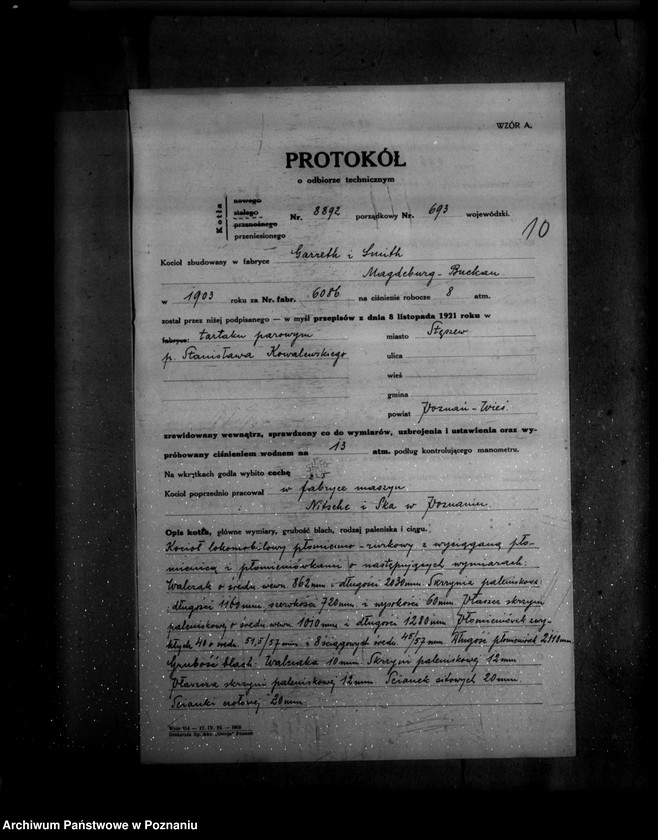 WZÓR A.
PROTOKÓŁ
o odbiorze technicznym
Kotła
nowego
stałego
przenośnego
przeniesionego
Nr. 8892 porządkowy Nr. 693 wojewódzki.
10
Kocioł zbudowany w fabryce Garreth i Smith
Magdeburg-Buckau
w 1903 roku za Nr. fabr. 6086 na ciśnienie robocze 8 atm.
został przez niżej podpisanego — w myśl przepisów z dnia 8 listopada 1921 roku w
fabryce: tartaku parowym miasto Stęszew
p. Stanisława Kowalewskiego ulica
wieś
gmina
powiat Poznań-Wieś
zrewidowany wewnątrz, sprawdzony co do wymiarów, uzbrojenia i ustawienia oraz wy-
próbowany ciśnieniem wodnem na 13 atm. podług kontrolującego manometru.
Na wkrętkach godła wybito cechę
Kocioł poprzednio pracował w fabryce maszyn
Nitsche i Ska w Poznaniu.
Opis kotła, główne wymiary, grubość blach, rodzaj paleniska i ciągu.
Kocioł lokomobilowy płomienno-rurkowy z wyciąganą pło-
mienicą i płomieniówkami o następujących wymiarach:
Walczak o średn. wewn. 862 mm. i długości 2030 mm. Skrzynia paleniskowa
długości 1160 mm, szerokości 720 mm. i wysokości 60 mm. Płaszcz skrzyni
paleniskowej o średn. wewn. 1010 mm. i długości 1280 mm. Płomieniówek zwy-
kłych 40 o średn. 51,5/57 mm. i 8 ściągowych średn. 45/57 mm. Długość płomieniówek 2110 mm.
Grubość blach: Walczaka 10 mm. Skrzyni paleniskowej 12 mm
Płaszcza skrzyni paleniskowej 12 mm. Ścianek sitowych 20 mm.
Ścianki czołowej 20 mm.
Archiwum Państwowe w Poznaniu